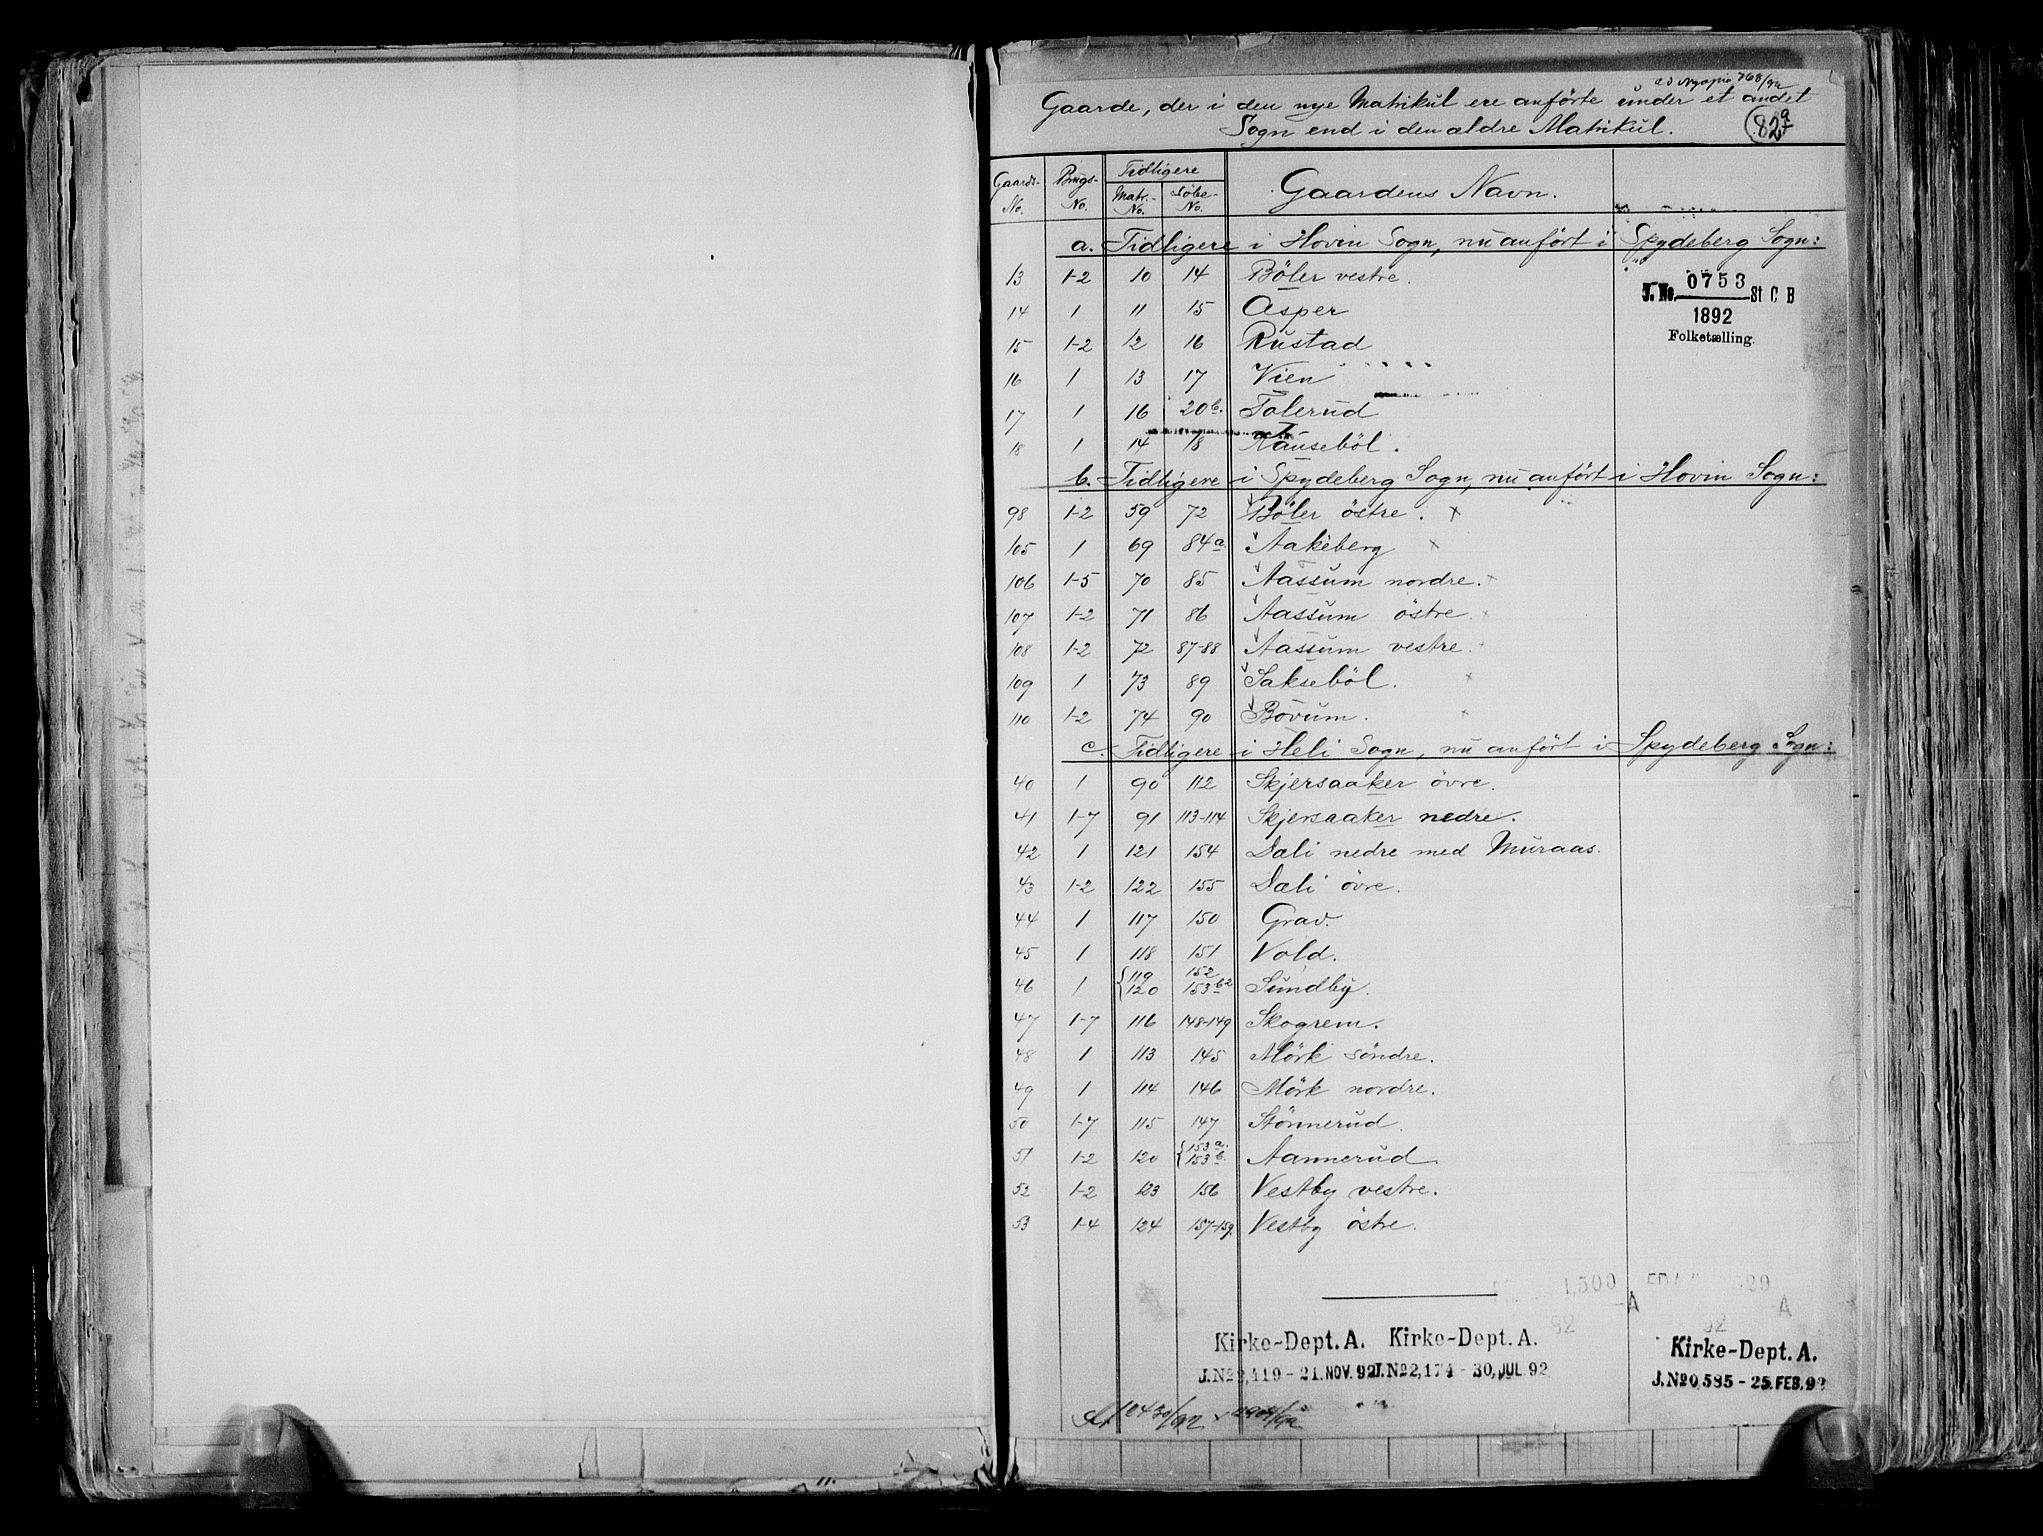 768/92
Gaarde, der i den nye Matrikul ere anförte under et andet
Sogn end i den ældre Matrikul.
82a
Gaards-No. Brugs-No. Tidligere Matr.-No. Löbe-No. Gaardens Navn.
a. Tidligere i Hovin Sogn, nu anfört i Spydeberg Sogn:
13 1-2 10 14 Böler vestre.
J. No. 0753 St C B
14 1 11 15 Asper
1892
15 1-2 12 16 Rustad
Folketælling.
16 1 13 17 Vien
17 1 16 20b. Tolerud
18 1 14 18 Knuseböl.
b. Tidligere i Spydeberg Sogn, nu anfört i Hovin Sogn:
98 1-2 59 72 Böler östre. x
105 1 69 84a Aakeberg x
106 1-5 70 85 Aassum nordre. x
107 1-2 71 86 Aassum östre. x
108 1-2 72 87-88 Aassum vestre. x
109 1 73 89 Sakseböl. x
110 1-2 74 90 Bovum. x
c. Tidligere i Heli Sogn, nu anfört i Spydeberg Sogn:
40 1 90 112 Skjersaaker övre.
41 1-7 91 113-114 Skjersaaker nedre.
42 1 121 154 Dæli nedre med Muraas.
43 1-2 122 155 Dæli övre.
44 1 117 150 Grav.
45 1 118 151 Vold.
46 1 {119 120 152 153b2 Sundby.
47 1-7 116 148-149 Skogrem.
48 1 113 145 Mörk söndre.
49 1 114 146 Mörk nordre.
50 1-7 115 147 Stönnerud.
51 1-2 120 {153a. 153b. Aannerud
52 1-2 123 156 Vestby vestre.
53 1-4 124 157-159. Vestby östre.
1,500
A A
92 92
Kirke-Dept. A. Kirke-Dept. A. Kirke-Dept. A.
21. NOV. 92 J. No 2,174 - 30, JUL. 92 J. No 0,585 - 25 FEB. 92